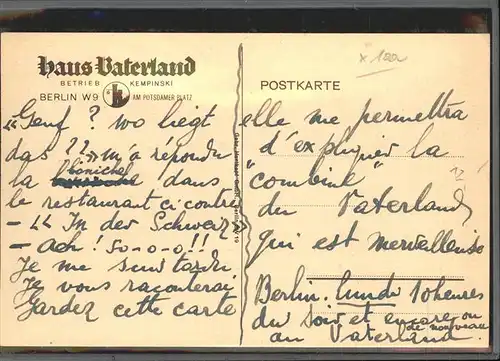 x 1-22
Haus Vaterland
BETRIEB KEMPINSKI
BERLIN W9 AM POTSDAMER PLATZ
POSTKARTE
« Genf ? wo liegt
das ?? » m'a répondu
la boniche dans
le restaurant ci-contre
- « In der Schweiz »
- Ach ! So-o-o !!
Je me sens tard
Je vous raconterai
Gardez cette carte
elle me permettra
d'expliquer la
"combine" 12
du Vaterland
qui est merveilleuse
Berlin. lundi 10 heures
du soir et encore ou
de nouveau
au Vaterland